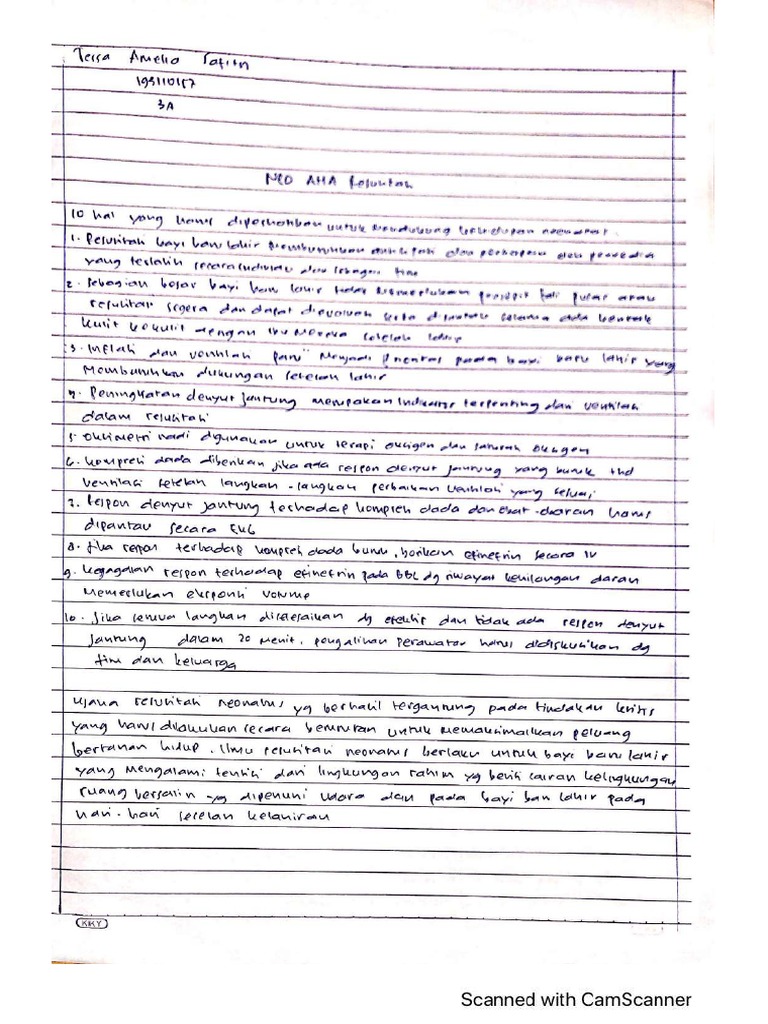 Tessa Amelia Safitri
193110157
3A
NEO AHA Resusitasi
10 hal yang harus diperhatikan untuk mendukung kehidupan neonatus.
1. Resusitasi bayi baru lahir membutuhkan antisipasi dan persiapan oleh penyedia
yang terlatih secara individu dan sebagai tim
2. Sebagian besar bayi baru lahir tidak memerlukan penjepit tali pusar atau
resusitasi segera dan dapat dievaluasi serta dipantau selama ada kontak
kulit ke kulit dengan ibu mereka setelah lahir
3. Inflasi dan ventilasi paru" menjadi prioritas pada bayi baru lahir yang
membutuhkan dukungan setelah lahir
4. Peningkatan denyut jantung merupakan indikator terpenting dari ventilasi
dalam resusitasi
5. Oksimetri nadi digunakan untuk terapi oksigen dan saturasi oksigen
6. kompresi dada diberikan jika ada respon denyut jantung yang buruk thd
ventilasi setelah langkah-langkah perbaikan ventilasi yang sesuai
7. Respon denyut jantung terhadap kompresi dada dan obat-obatan harus
dipantau secara EKG
8. Jika respon terhadap kompresi dada buruk, berikan efinefrin secara IV
9. kegagalan respon terhadap efinefrin pada BBL dg riwayat kehilangan darah
memerlukan ekspansi volume
10. Jika semua langkah diselesaikan dg efektif dan tidak ada respon denyut
jantung dalam 20 menit, pengalihan perawatan harus didiskusikan dg
tim dan keluarga
resusitasi neonatus yg berhasil tergantung pada tindakan kritis
yang harus dilakukan secara berurutan untuk memaksimalkan peluang
bertahan hidup. Ilmu resusitasi neonatus berlaku untuk bayi baru lahir
yang mengalami transisi dari lingkungan rahim yg berisi cairan ke lingkungan
ruang bersalin yg dipenuhi udara dan pada bayi baru lahir pada
hari-hari setelah kelahiran
KKY
Scanned with CamScanner